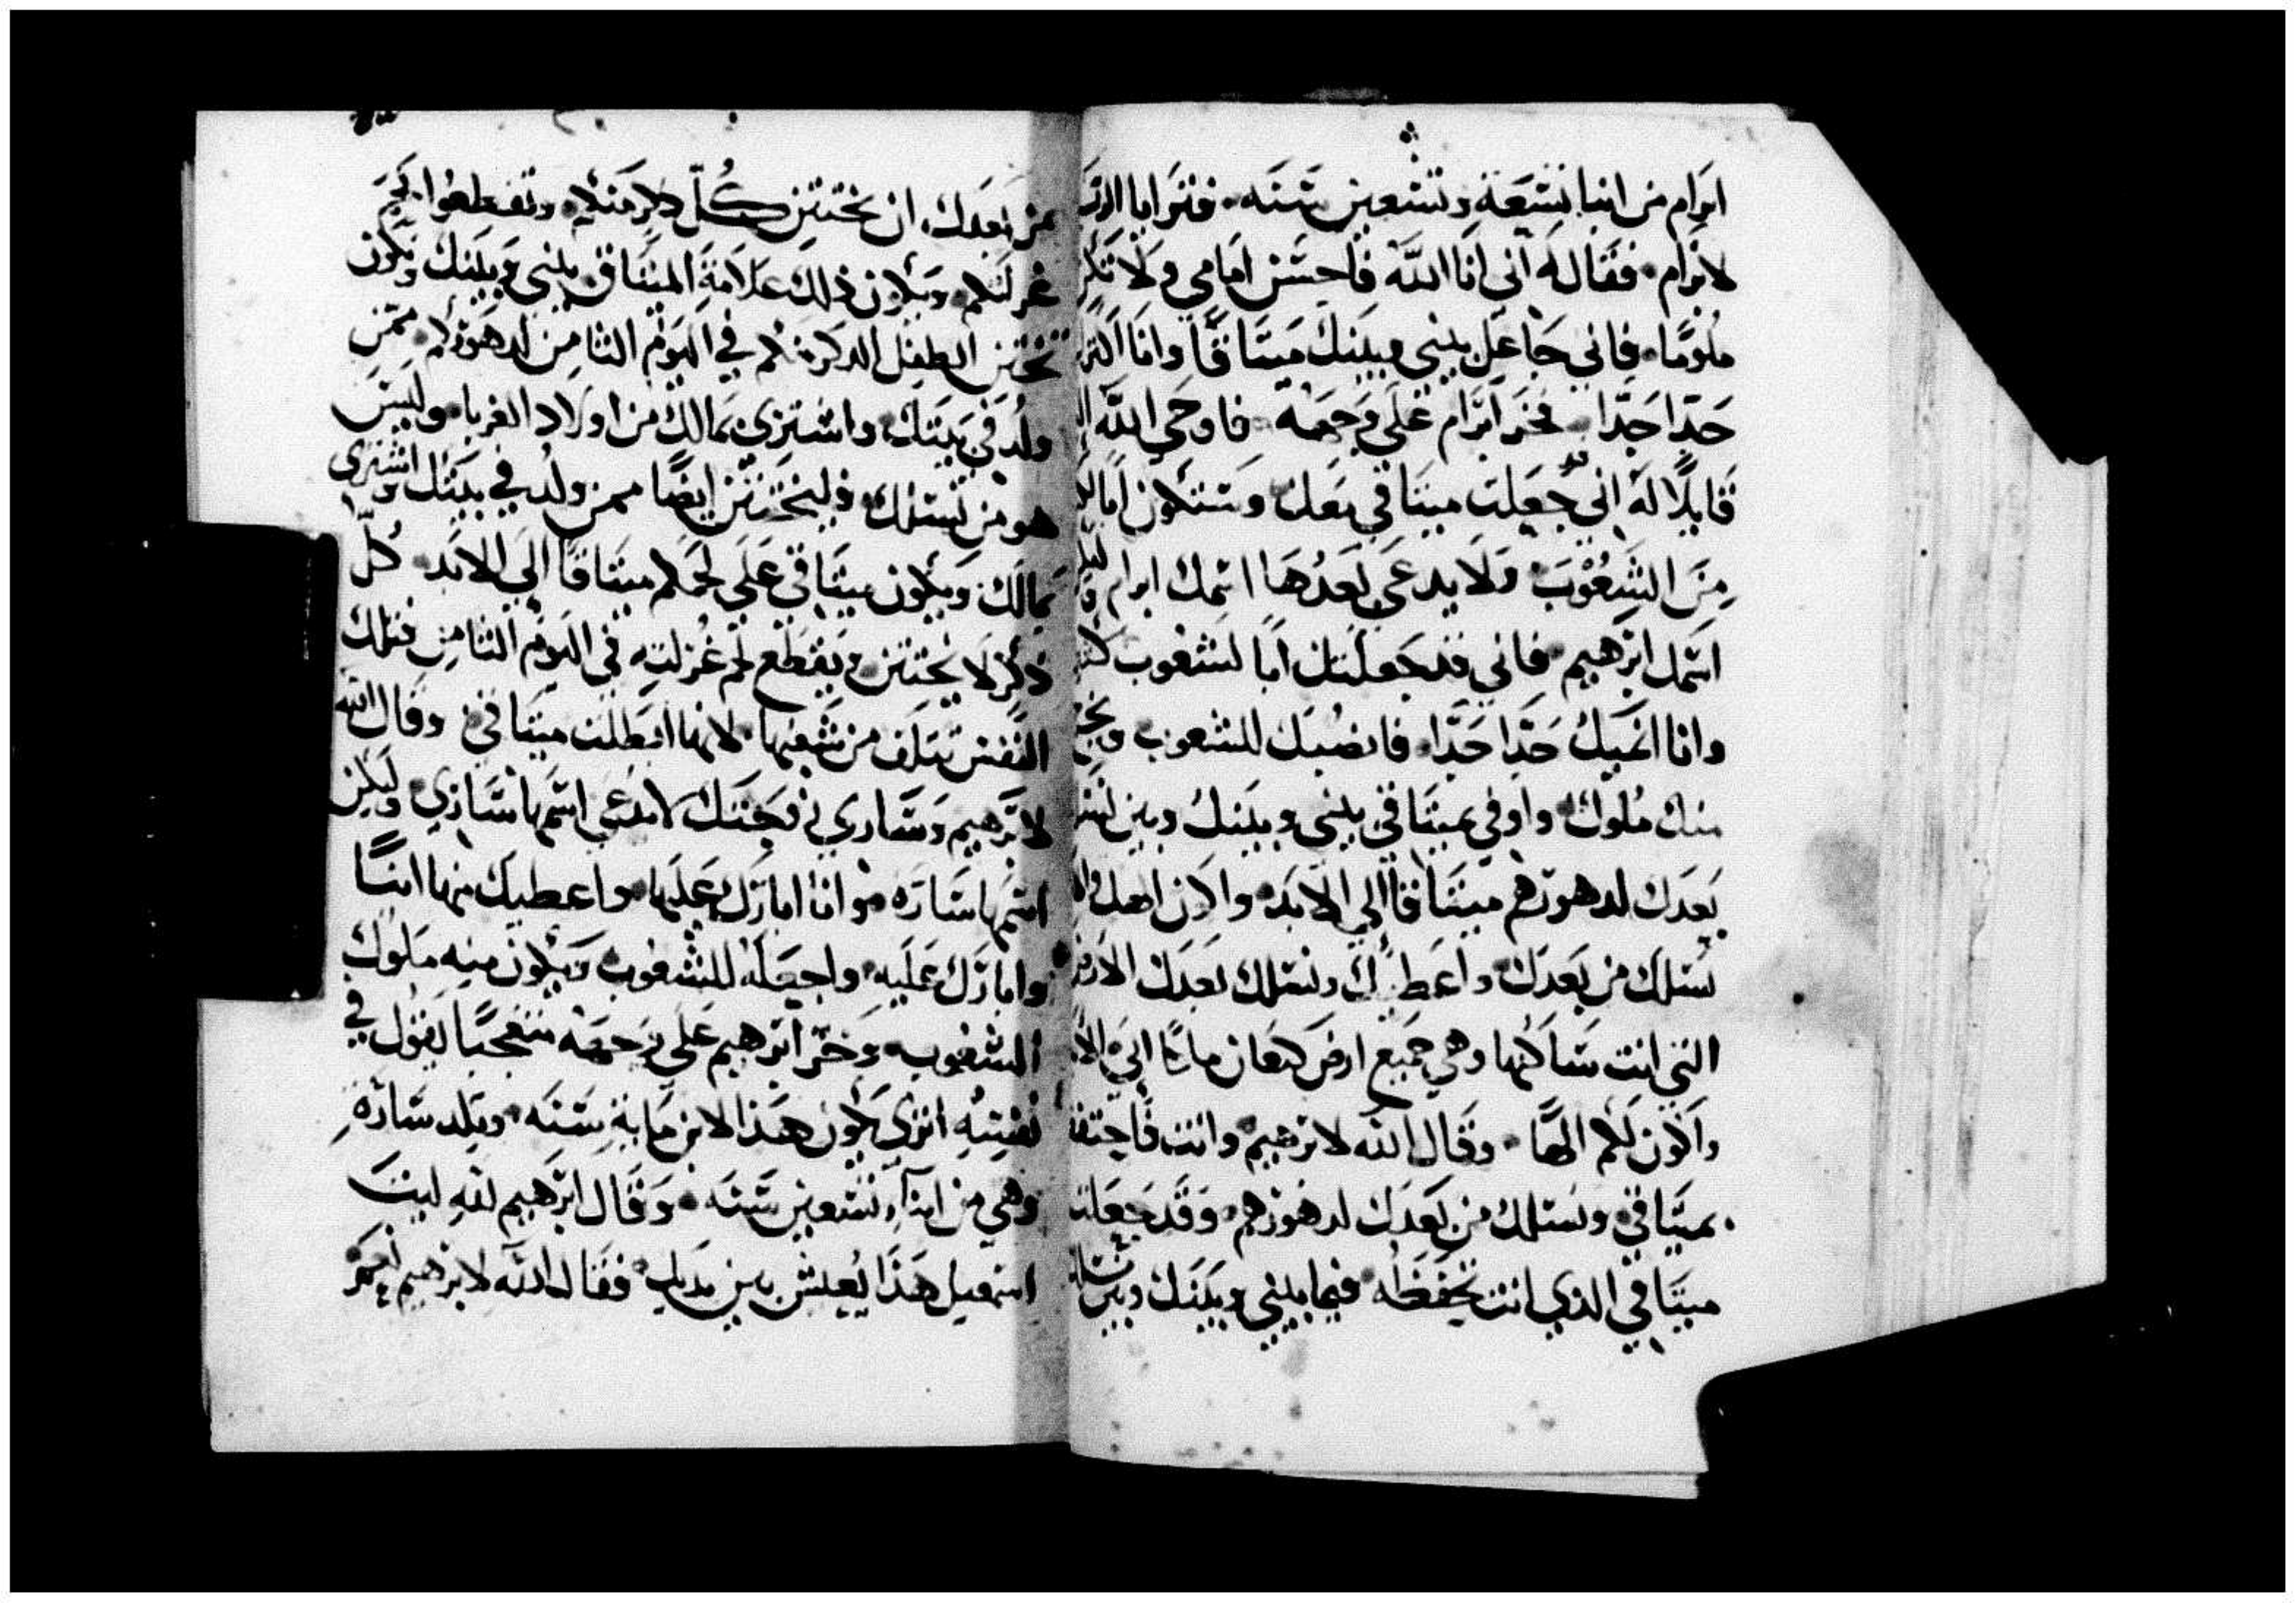 ابرام من ابنا تسعة وتسعين سنه فترايا الرب
لابرام فقال له اني انا الله فاحسن امامي ولا تكن
ملوما فاني جاعل بيني وبينك ميتاقا وانا اكثرك
جدا جدا فخر ابرام علي وجهه فاوحي الله
قايلا له اني قد جعلت ميتاقي معك وستكون ابا
من الشعوب ولا يدعي بعدها اسمك ابرام
اسمك ابرهيم فاني قد جعلتك ابا لشعوب
وانا انميك جدا جدا فانصبك للشعوب
منك ملوك واوفي بميتاقي بيني وبينك وبين
بعدك لدهورهم ميتاقا الي الابد واكون
نسلك من بعدك واعطيك ونسلك بعدك الارض
التي انت ساكنها وهي جميع ارض كنعان الي
واكون لكم الها وقال الله لابرهيم وانت فاحتفظ
بميتاقي ونسلك من بعدك لدهورهم وقد جعلت
ميتاقي الذي انت تحفظه فيما بيني وبينك وبين نسلك
من بعدك ان يختتن كل ذكر منكم وتقطعوا لحم
غرلتكم ويكون ذلك علامة الميتاق بيني وبينك ويكون
يختتن الطفل الدكر منكم في اليوم التامن لدهوركم ممن
ولد في بيتك واشتري بمالك من اولاد الغربا وليس
هو من نسلك فليختتن ايضا ممن ولد في بيتك واشتري
بمالك ويكون ميتاقي علي لحمكم ميتاقا الي الابد كل
ذكر لا يختتن ويقطع لحم غرلته في اليوم التامن فتلك
النفس تتلف من شعبها لانها ابطلت ميتاقي وقال الله
لابرهيم وساري زوجتك لا يدعي اسمها ساري وليكن
اسمها ساره وانا ابارك عليها واعطيك منها ابنا
وابارك عليه واجعله للشعوب ويكون منه ملوك
الشعوب وخر ابرهيم علي وجهه متعجبا يقول في
نفسه اتري يكون هذا لابن ماية سنه وتلد ساره
وهي من ابناء تسعين سنه وقال ابرهيم لله ليت
اسمعيل هذا يعيش بين يديك فقال الله لابرهيم نعم